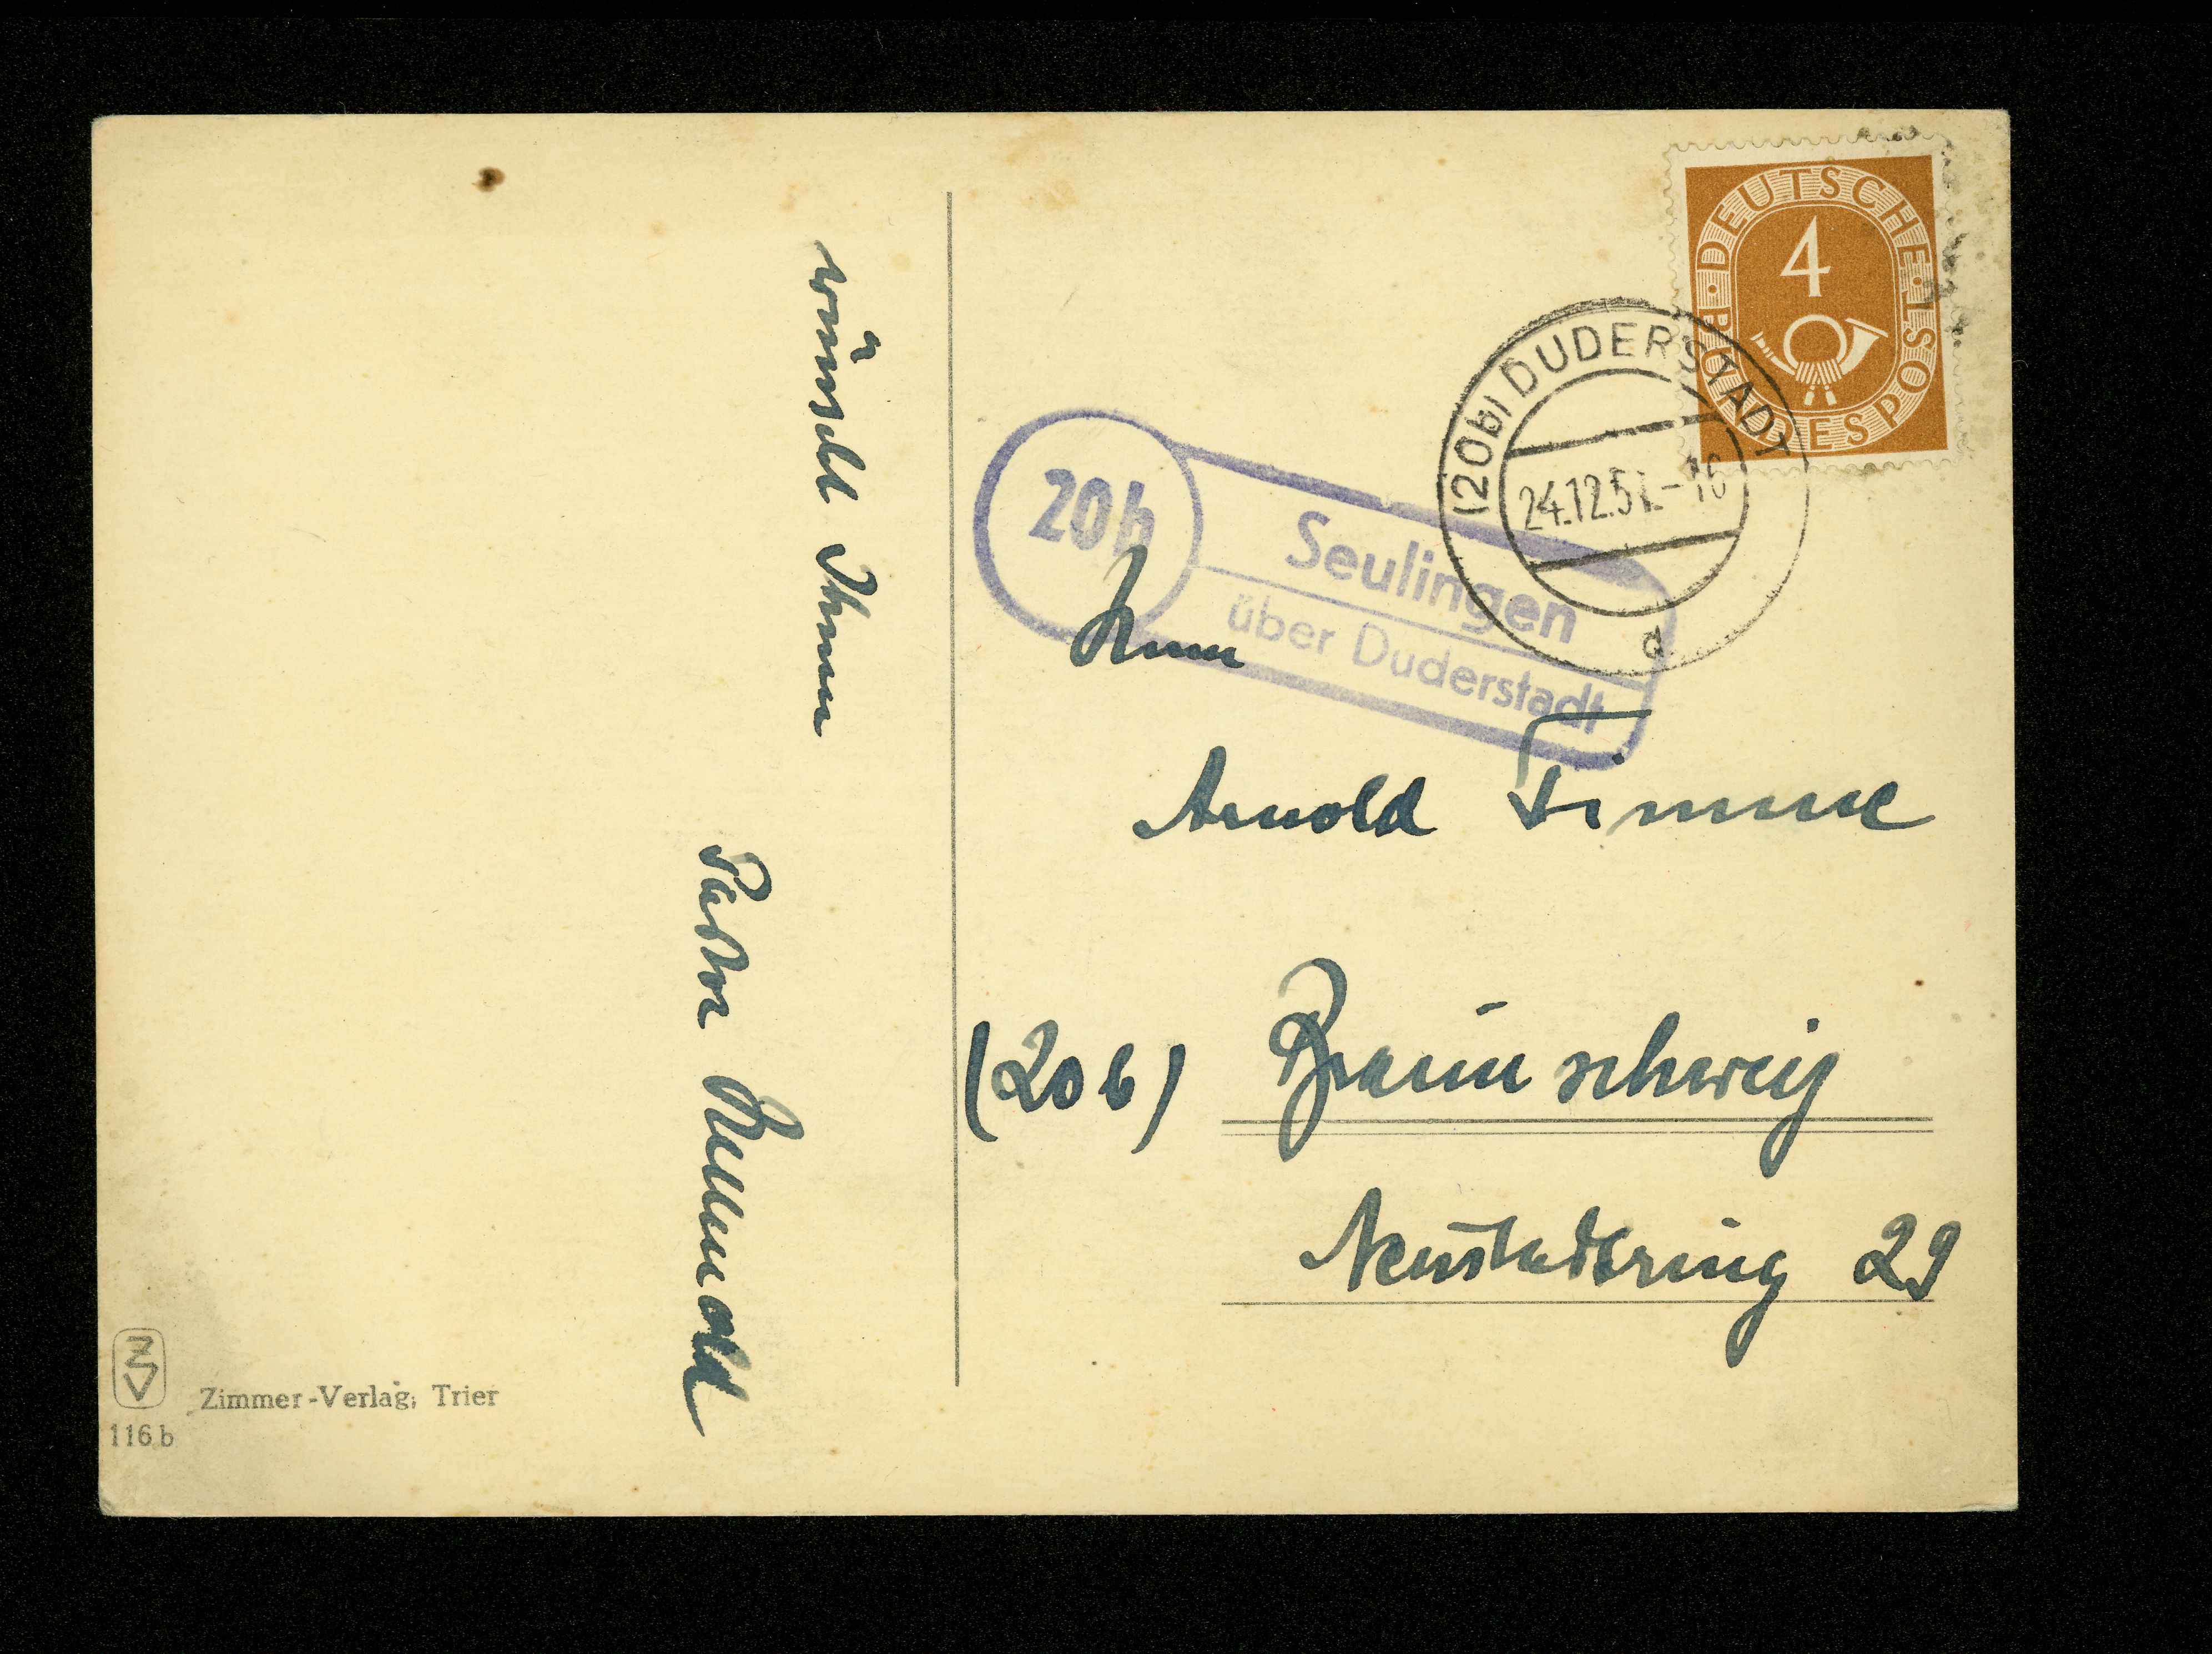 wünscht Ihnen
Pastor
Zimmer-Verlag, Trier
ZV
116 b
DEUTSCHE BUNDESPOST
4
(20b) DUDERSTADT
24.12.51.-16
a
20b
Seulingen
über Duderstadt
Herrn
Arnold Timme
(20b) Braunschweig
Neustadtring 29